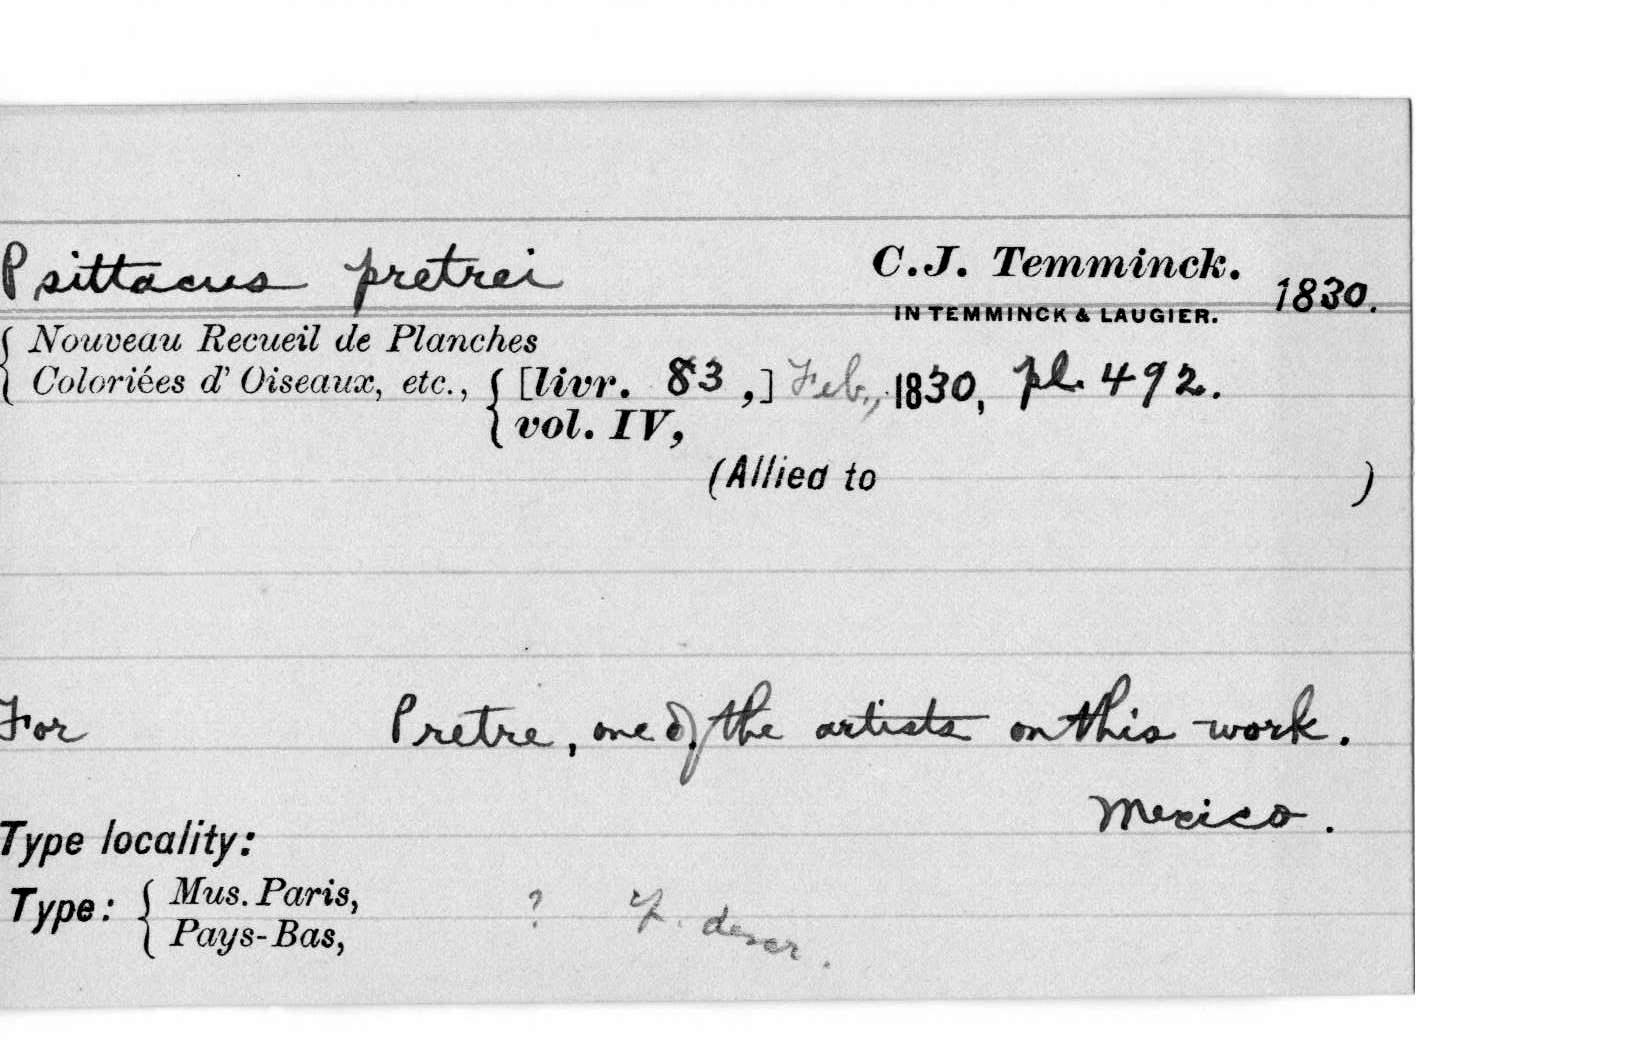 Psittacus pretrei C.J. Temminck.
IN TEMMINCK & LAUGIER. 1830.
Nouveau Recueil de Planches
Coloriées d' Oiseaux, etc., [livr. 83,] Feb., 1830, pl. 492.
vol. IV,
(Allied to )
For Pretre, one of the artists on this work.
Mexico.
Type locality:
Type: Mus. Paris,
Pays-Bas,
? descr.